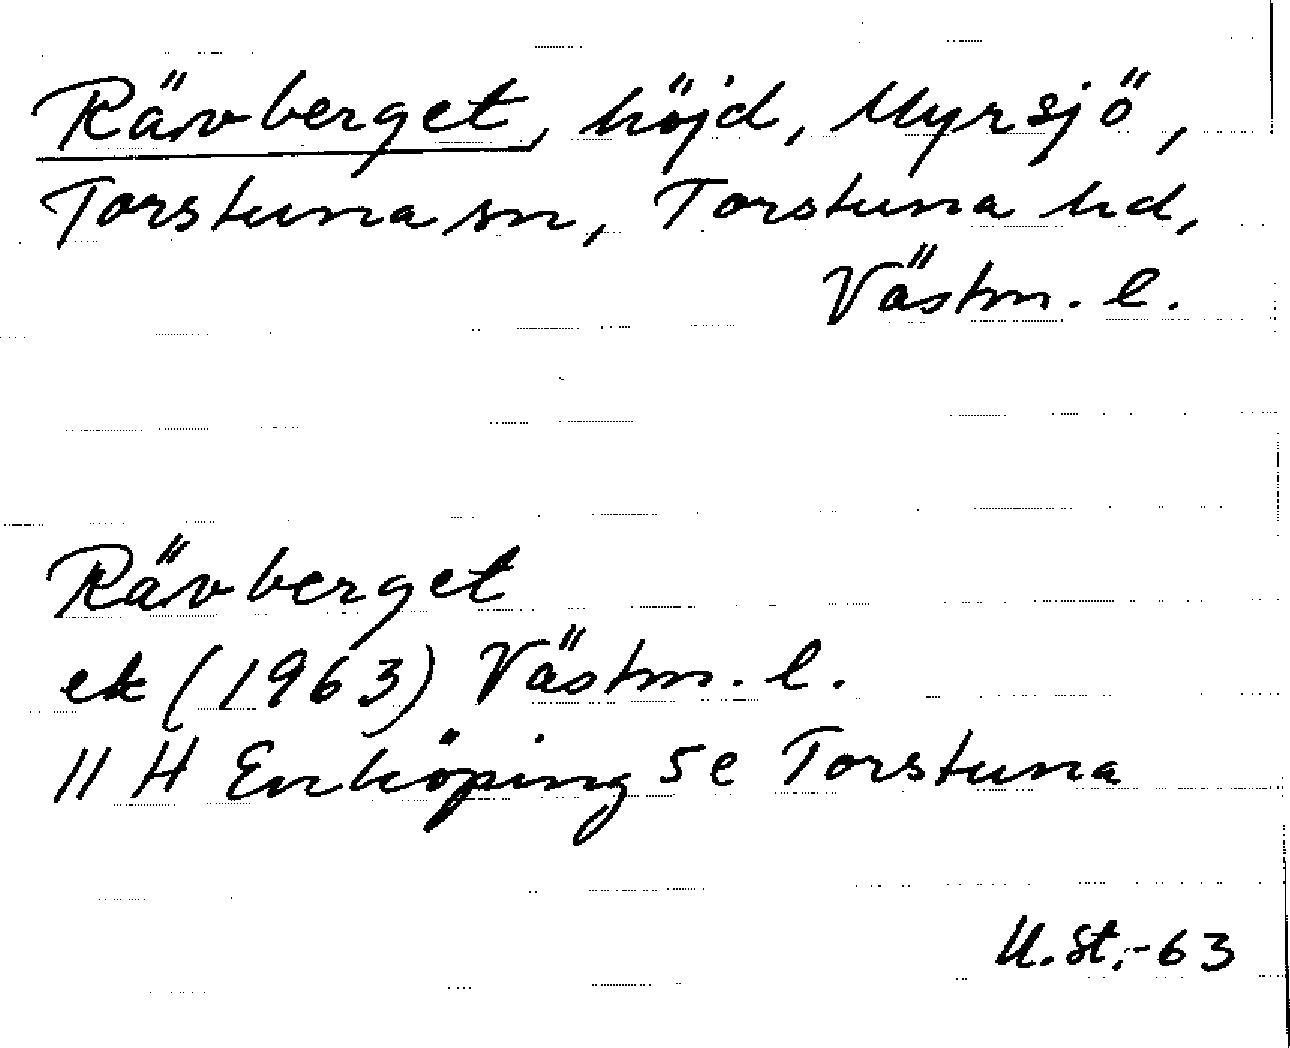 Rävberget, höjd, Myrsjö,
Torstuna sn, Torstuna hd,
Västm. l.
Rävberget
ek (1963) Västm. l.
11 H Enköping 5e Torstuna
U.St.-63